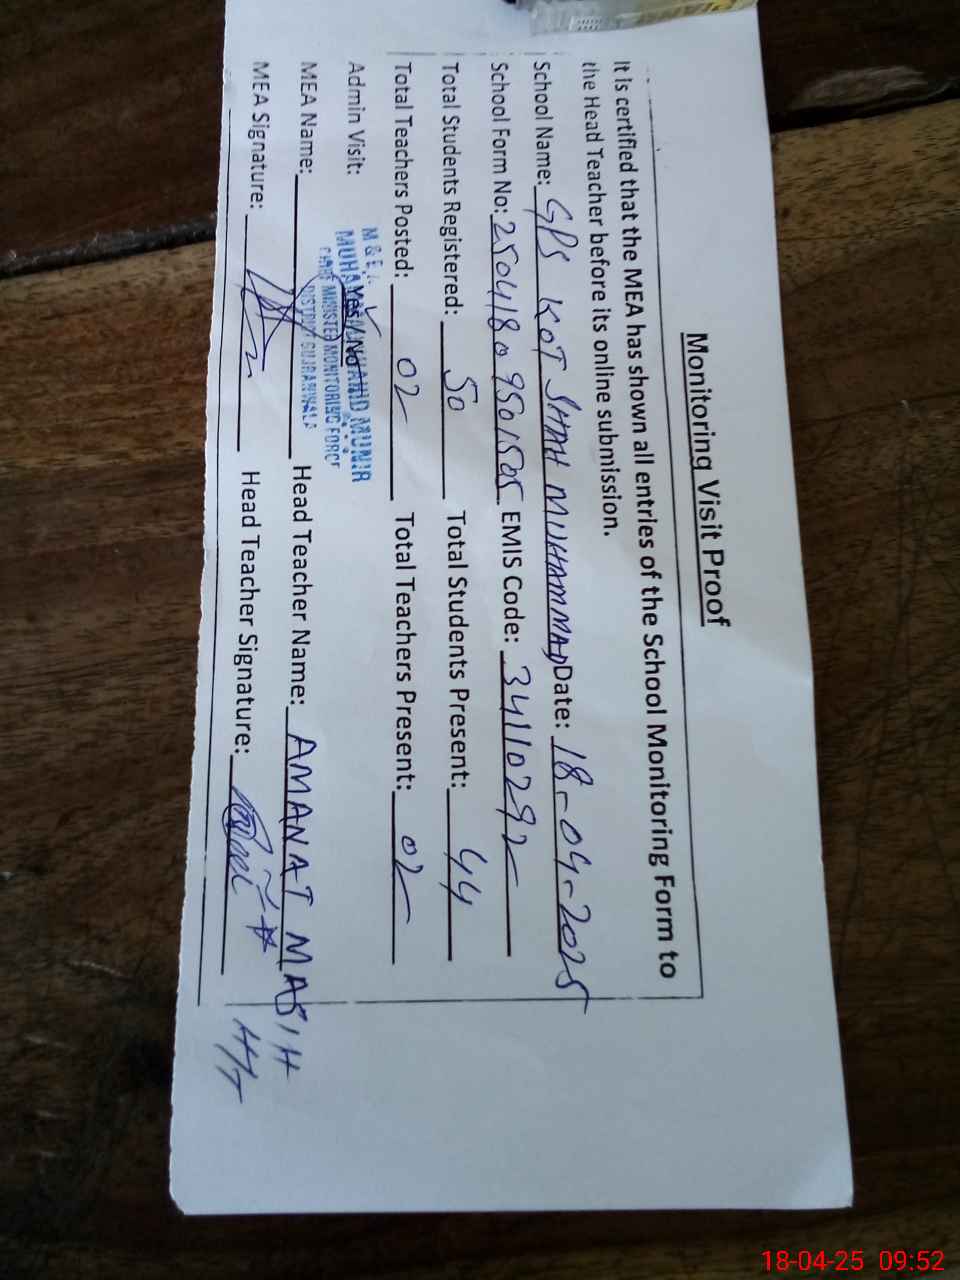 Monitoring Visit Proof
It is certified that the MEA has shown all entries of the School Monitoring Form to
the Head Teacher before its online submission.
School Name: GPS KOT SHAH MUHAMMAD Date: 18-04-2025
School Form No: 25041809501505 EMIS Code: 34110292
Total Students Registered: 50 Total Students Present: 44
Total Teachers Posted: 02 Total Teachers Present: 02
Admin Visit: Yes / No
M & E A
MUHAMMAD MUNIR
CHIEF MINISTER MONITORING FORCE
DISTRICT GUJRANWALA
MEA Name: Head Teacher Name: AMANAT MASIH
MEA Signature: Head Teacher Signature:
H/T
18-04-25 09:52